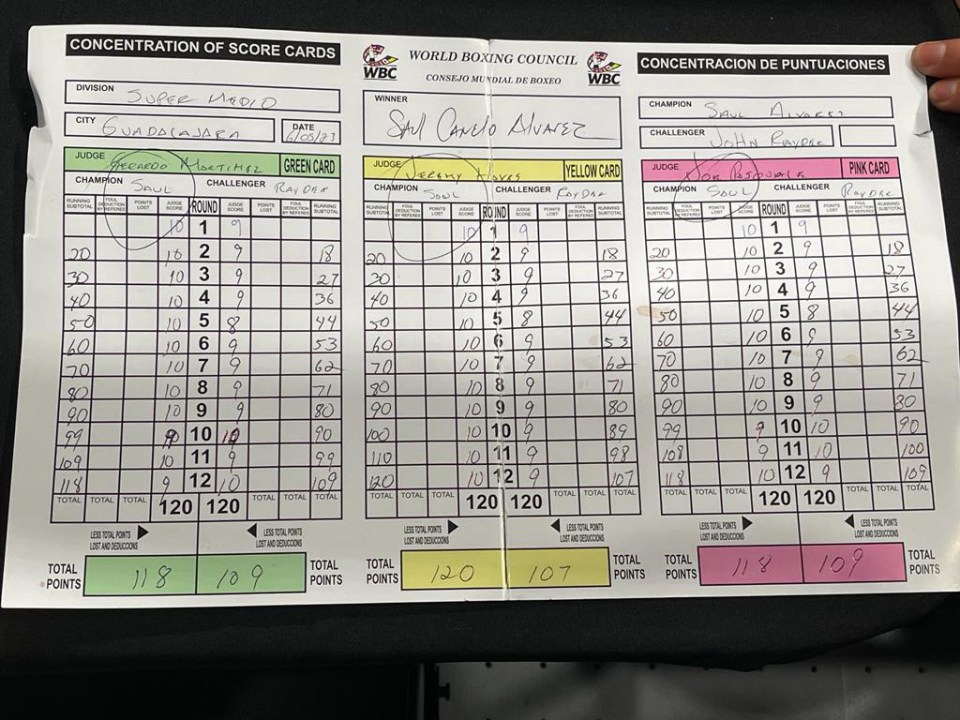 CONCENTRATION OF SCORE CARDS
DIVISION SUPER MEDIO
CITY GUADALAJARA DATE 6/05/23
JUDGE GERARDO MARTINEZ GREEN CARD
CHAMPION SAUL CHALLENGER RAYDER
RUNNING SUBTOTAL FOUL DEDUCTION BY REFEREE POINTS LOST JUDGE SCORE ROUND JUDGE SCORE POINTS LOST FOUL DEDUCTION BY REFEREE RUNNING SUBTOTAL
10 1 9
20 10 2 9 18
30 10 3 9 27
40 10 4 9 36
50 10 5 8 44
60 10 6 9 53
70 10 7 9 62
80 10 8 9 71
90 10 9 9 80
99 9 10 10 90
109 10 11 9 99
118 9 12 10 109
TOTAL TOTAL TOTAL 120 120 TOTAL TOTAL TOTAL
LESS TOTAL POINTS LOST AND DEDUCCIONS LESS TOTAL POINTS LOST AND DEDUCCIONS
TOTAL POINTS 118 109 TOTAL POINTS
WBC WORLD BOXING COUNCIL WBC
CONSEJO MUNDIAL DE BOXEO
WINNER
SAUL CANELO ALVAREZ
JUDGE JEREMY HAYES YELLOW CARD
CHAMPION SAUL CHALLENGER RAYDER
RUNNING SUBTOTAL FOUL DEDUCTION BY REFEREE POINTS LOST JUDGE SCORE ROUND JUDGE SCORE POINTS LOST FOUL DEDUCTION BY REFEREE RUNNING SUBTOTAL
10 1 9
20 10 2 9 18
30 10 3 9 27
40 10 4 9 36
50 10 5 8 44
60 10 6 9 53
70 10 7 9 62
80 10 8 9 71
90 10 9 9 80
100 10 10 9 89
110 10 11 9 98
120 10 12 9 107
TOTAL TOTAL TOTAL 120 120 TOTAL TOTAL TOTAL
LESS TOTAL POINTS LOST AND DEDUCCIONS LESS TOTAL POINTS LOST AND DEDUCCIONS
TOTAL POINTS 120 107 TOTAL POINTS
CONCENTRACION DE PUNTUACIONES
CHAMPION SAUL ALVAREZ
CHALLENGER JOHN RAYDER
JUDGE PINK CARD
CHAMPION SAUL CHALLENGER RAYDER
RUNNING SUBTOTAL FOUL DEDUCTION BY REFEREE POINTS LOST JUDGE SCORE ROUND JUDGE SCORE POINTS LOST FOUL DEDUCTION BY REFEREE RUNNING SUBTOTAL
10 1 9
20 10 2 9 18
30 10 3 9 27
40 10 4 9 36
50 10 5 8 44
60 10 6 9 53
70 10 7 9 62
80 10 8 9 71
90 10 9 9 80
99 9 10 10 90
108 9 11 10 100
118 10 12 9 109
TOTAL TOTAL TOTAL 120 120 TOTAL TOTAL TOTAL
LESS TOTAL POINTS LOST AND DEDUCCIONS LESS TOTAL POINTS LOST AND DEDUCCIONS
TOTAL POINTS 118 109 TOTAL POINTS